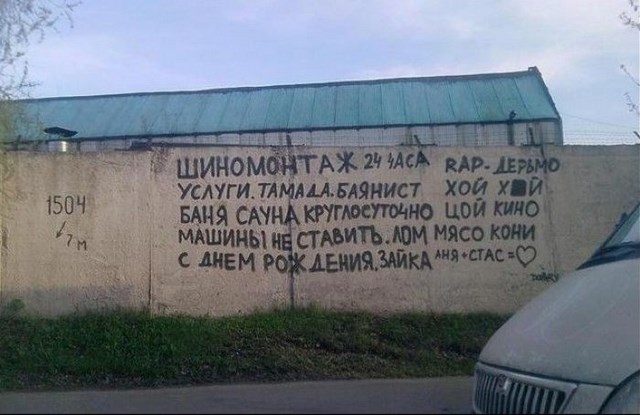 ШИНОМОНТАЖ 24 ЧАСА RAP-ДЕРЬМО
УСЛУГИ. ТАМАДА. БАЯНИСТ ХОЙ Х Й
БАНЯ САУНА КРУГЛОСУТОЧНО ЦОЙ КИНО
МАШИНЫ НЕ СТАВИТЬ. ЛОМ МЯСО КОНИ
С ДНЕМ РОЖДЕНИЯ, ЗАЙКА АНЯ+СТАС=♡
1504
7 М